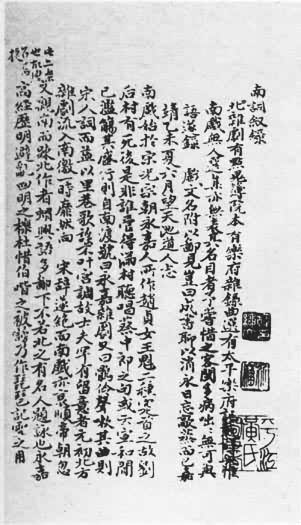 南詞叙録
北雜劇有點鬼簿院本有樂府雜錄曲選有太平樂府
南戲無人選集亦無表其名目者予嘗惜之客閩多病咄咄無可與
語遂錄戲文名附以鄙見豈曰成書聊以消永日忘歊蒸而已嘉
靖乙未夏六月望天池道人志
南戲始於宋光宗朝永嘉人所作趙貞女王魁二種實首之故劉
后村有死後是非誰管得滿村聽唱蔡中郎之句或云宣和間
已濫觴其盛行則自南渡號曰永嘉雜劇又曰鶻伶聲嗽其曲則
宋人詞而益以里巷歌謠不叶宮調故士夫罕有留意者元初北方
雜劇流入南徼一時靡然向 宋辭遂絕而南戲亦衰順帝朝忽
又親南而疎北作者蝟興語多鄙下不若北之有名人題詠也永嘉
高經歷明避亂四明之櫟社惜伯喈之被謗乃作琵琶記雪之用